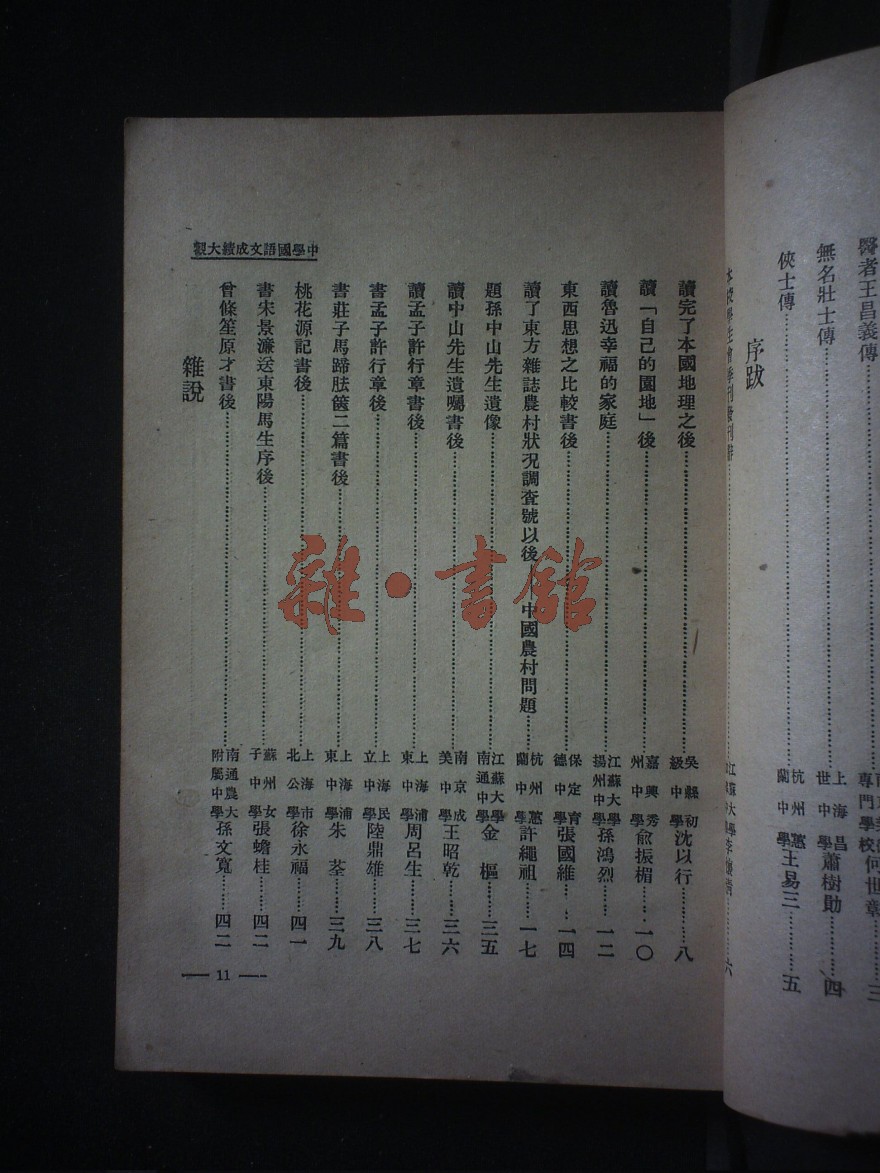 醫者王昌義傳
何世章 三
無名壯士傳 上海昌世中學 蕭樹勛 四
俠士傳 杭州蕙蘭中學 王易三 五
序跋
六
讀完了本國地理之後 吳縣初級中學 沈以行 八
讀「自己的園地」後 嘉興秀州中學 俞振楣 一〇
讀魯迅幸福的家庭 江蘇大學揚州中學 孫鴻烈 一二
東西思想之比較書後 保定育德中學 張國維 一四
讀了東方雜誌農村狀况調查號以後 中國農村問題 杭州蕙蘭中學 許繩祖 一七
題孫中山先生遺像 江蘇大學南通中學 金樞 三五
讀中山先生遺囑書後 南京成美中學 王昭乾 三六
讀孟子許行章書後 上海浦東中學 周呂生 三七
書孟子許行章後 上海民立中學 陸鼎雄 三八
書莊子馬蹄胠篋二篇書後 上海浦東中學 朱荃 三九
桃花源記書後 上海市北公學 徐永福 四一
書宋景濂送東陽馬生序後 蘇州女子中學 張蟾桂 四二
曾滌笙原才書後 南通農大附屬中學 孫文寬 四二
雜說
中學國語文成績大觀
11
雜·書館